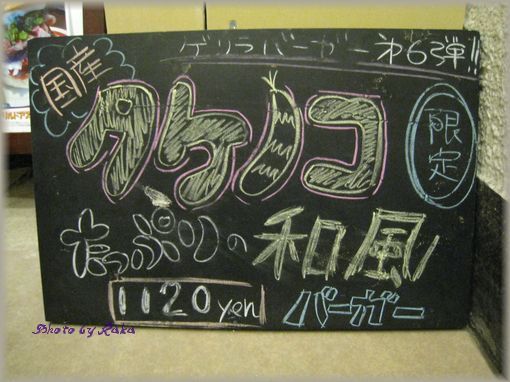 ゲリラバーガー第6弾!!
国産
タケノコ
限定
たっぷりの和風
1120yen
バーガー
Photo by Kaka